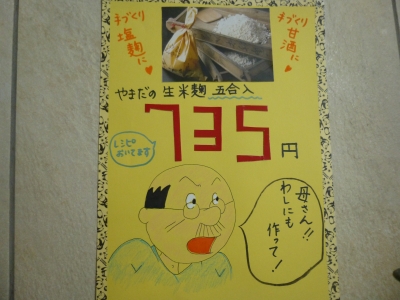 手づくり
塩麹に
手づくり
甘酒に
やまだの生米麹 五合入
735円
レシピ
おいてます
母さん!!
わしにも
作って!